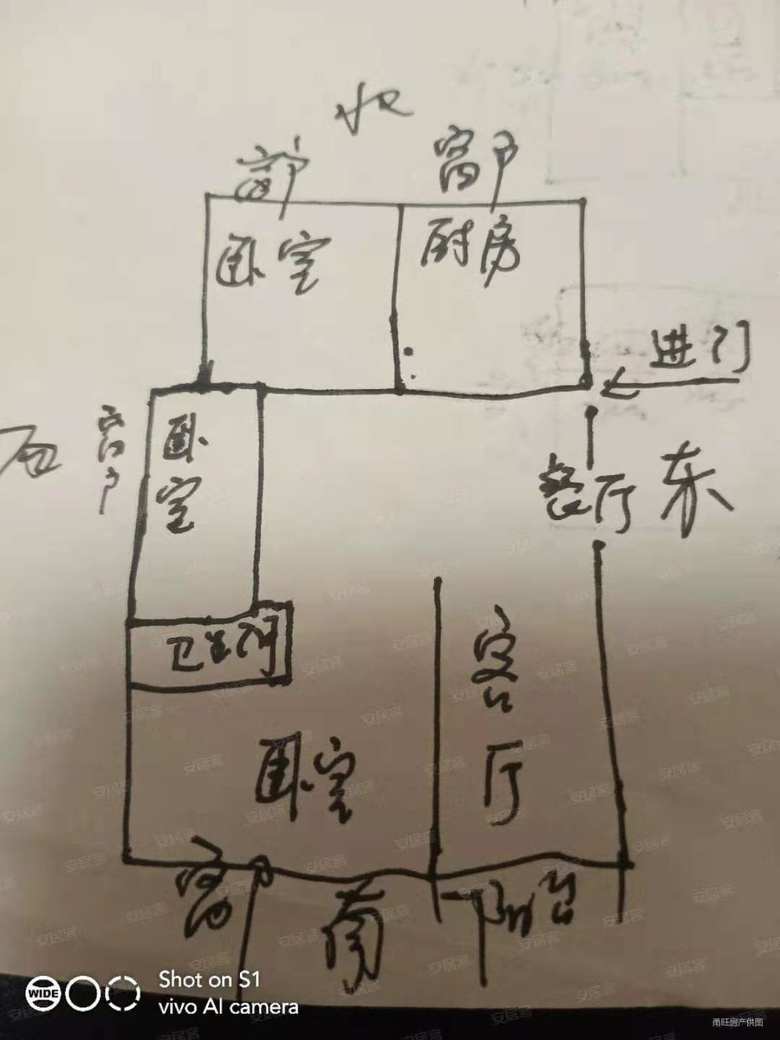 北
窗户
窗户
卧室
厨房
进门
西
窗户
卧室
餐厅
东
卫生间
客厅
卧室
窗
南
阳台
WIDE
Shot on S1
vivo AI camera
甬旺房产供图
安居客